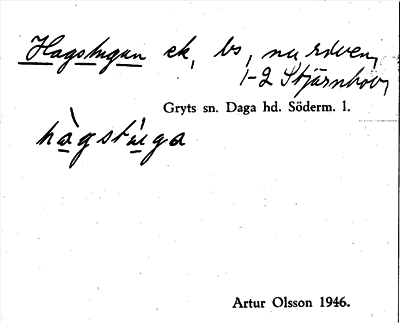 Hagstugan ek, bs, nu riven,
1-2 Stjärnhov,
Gryts sn. Daga hd. Söderm. l.
hàgstu̇ga
Artur Olsson 1946.